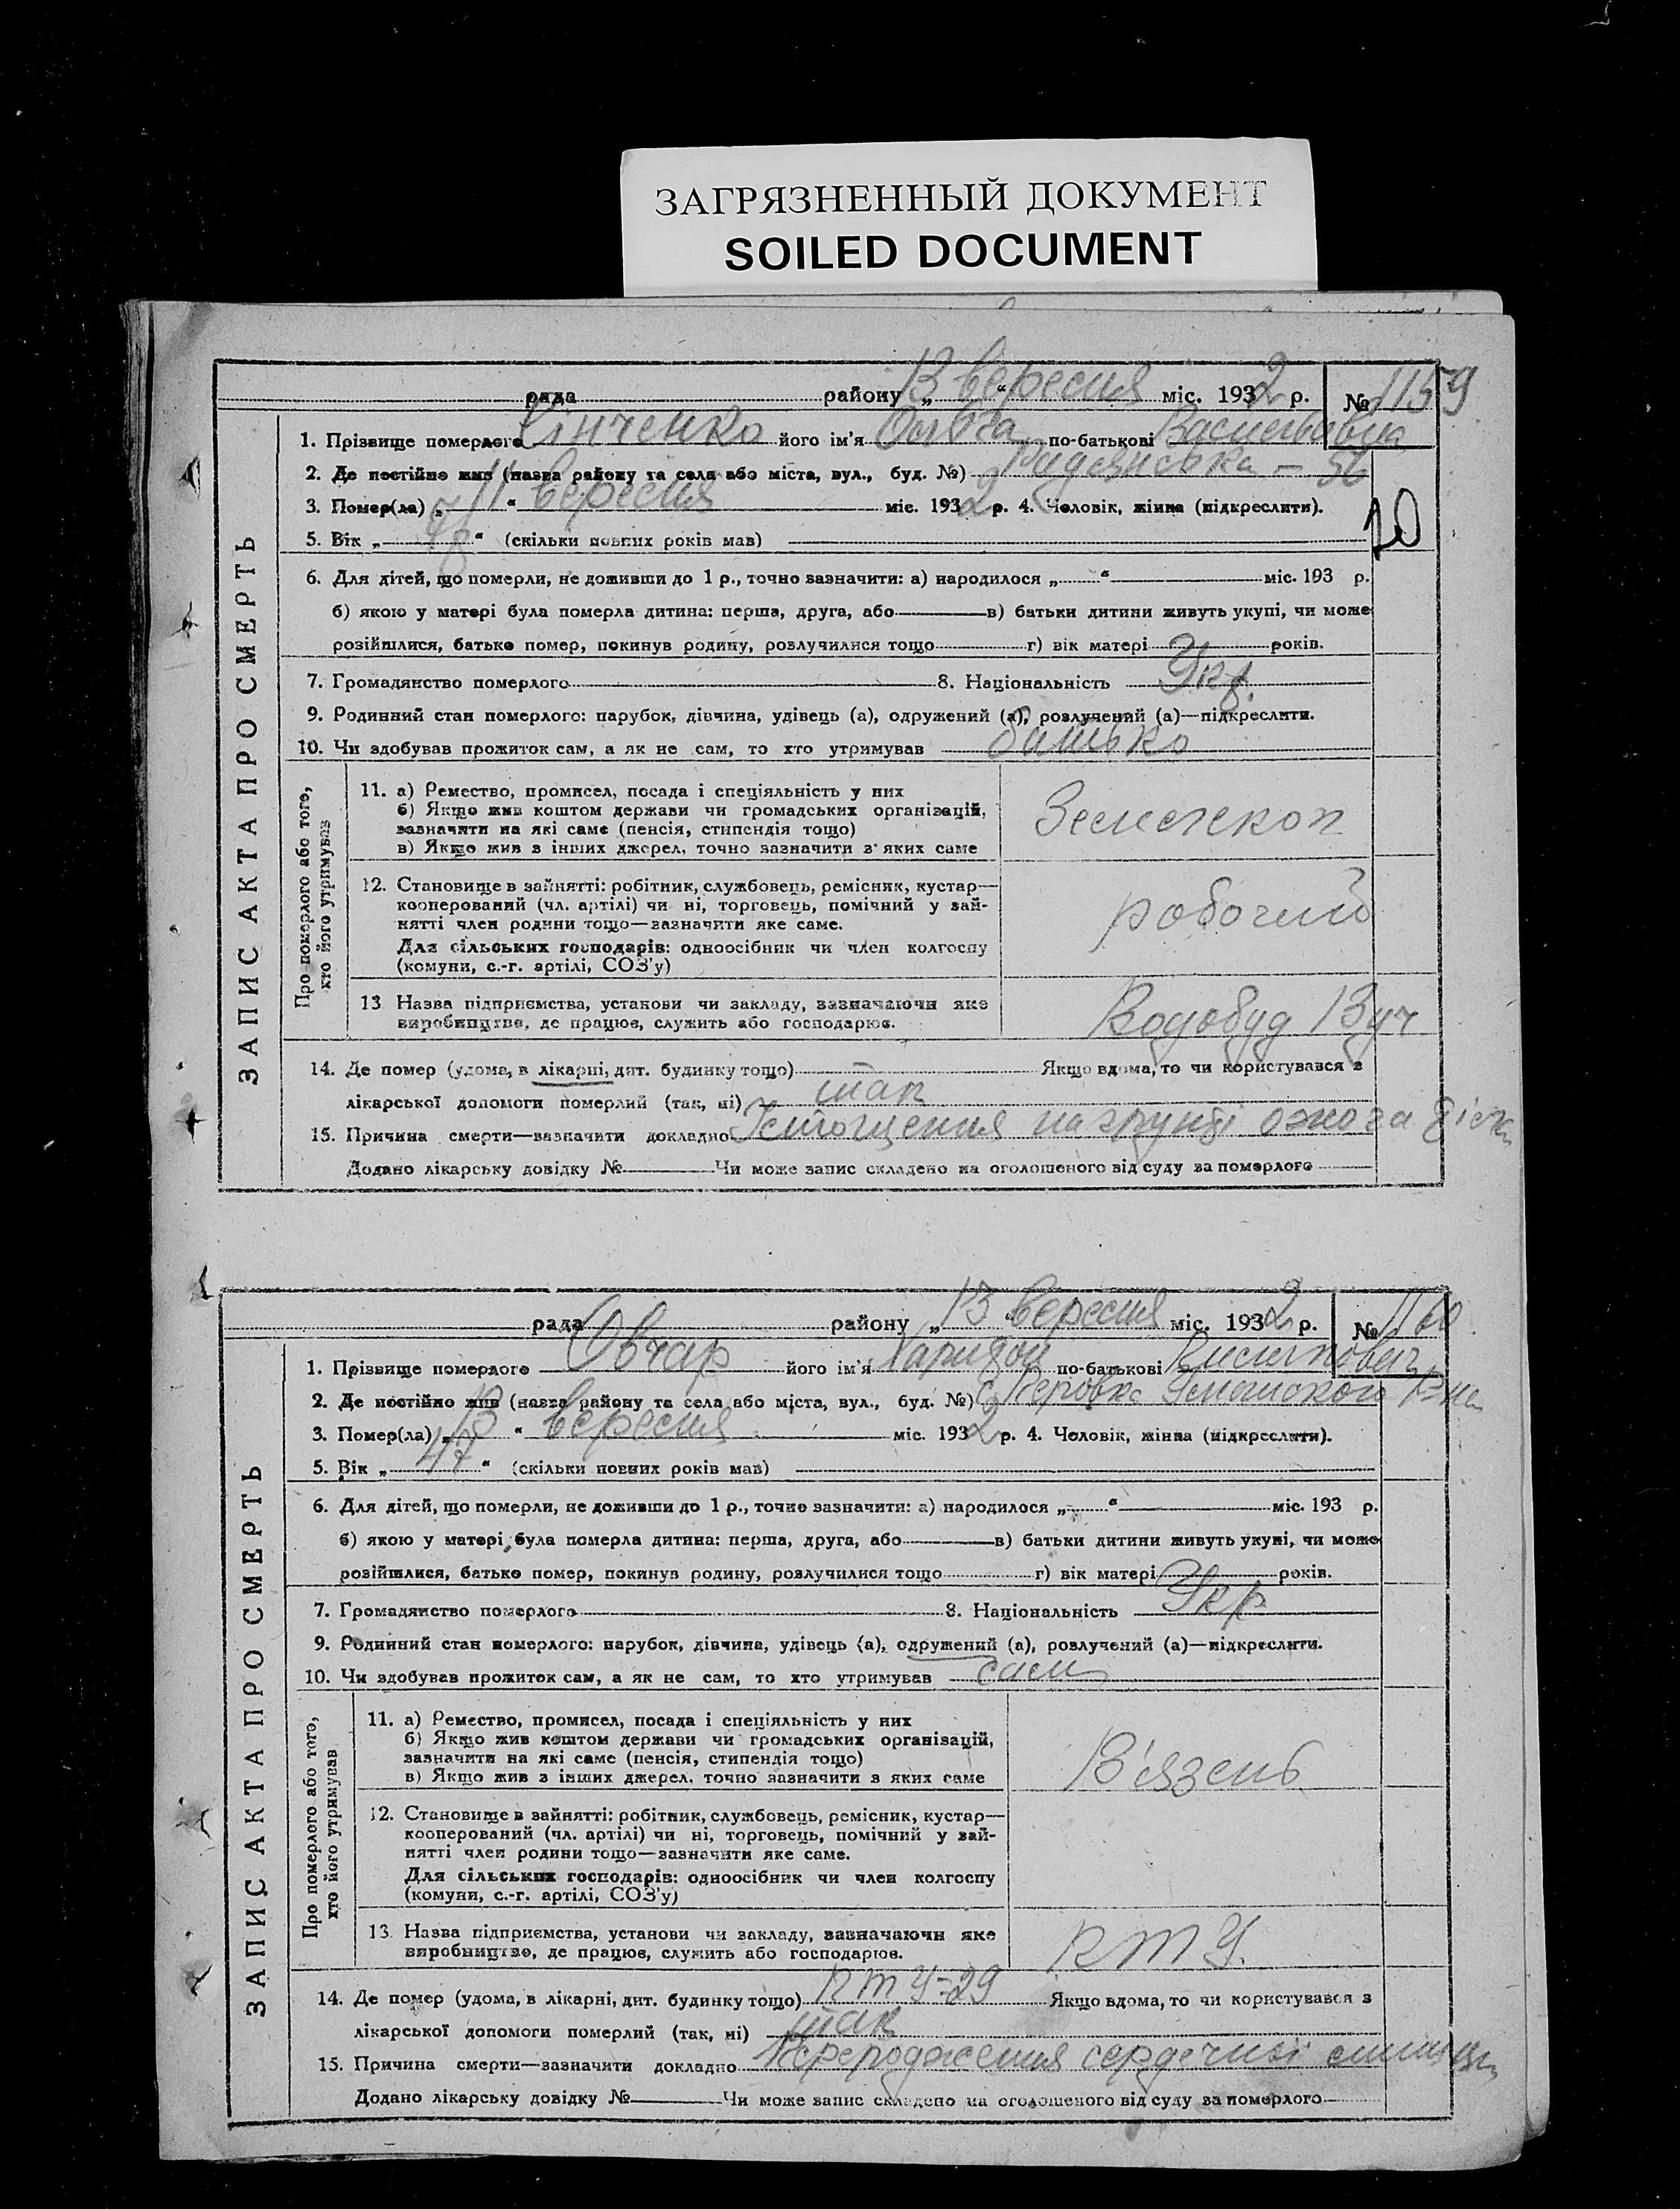 ЗАГРЯЗНЕННЫЙ ДОКУМЕНТ
SOILED DOCUMENT
ЗАПИС АКТА ПРО СМЕРТЬ
рада району „13 вересня“ міс. 1932 р. № 1159
1. Прізвище померлого Лінченко його ім'я Ольга по-батькові Васильовна
2. Де постійно жив (назва району та села або міста, вул., буд. №) Радянська – 56
3. Помер(ла) „11“ вересня міс. 1932 р. 4. Чоловік, жінка (підкреслити).
20
5. Вік „“ (скільки повних років мав)
6. Для дітей, що померли, не доживши до 1 р., точно зазначити: а) народилося „ “ міс. 193 р.
б) якою у матері була померла дитина: перша, друга, або в) батьки дитини живуть укупі, чи може
розійшлися, батько помер, покинув родину, розлучилися тощо г) вік матері років.
7. Громадянство померлого 8. Національність Укр.
9. Родинний стан померлого: парубок, дівчина, удівець (а), одружений (а), розлучений (а)—підкреслити.
10. Чи здобував прожиток сам, а як не сам, то хто утримував батько
Про померлого або того, хто його утримував
11. а) Ремество, промисел, посада і спеціяльність у них
б) Якщо жив коштом держави чи громадських організацій,
зазначити на які саме (пенсія, стипендія тощо)
в) Якщо жив з інших джерел, точно зазначити з яких саме
Землекоп
12. Становище в зайнятті: робітник, службовець, ремісник, кустар—
кооперований (чл. артілі) чи ні, торговець, помічний у зай-
нятті член родини тощо—зазначити яке саме.
Для сільських господарів: одноосібник чи член колгоспу
(комуни, с.-г. артілі, СОЗ'у)
робочий
13 Назва підприємства, установи чи закладу, зазначаючи яке
виробництво, де працює, служить або господарює.
Водобуд 13 уч
14. Де помер (удома, в лікарні, дит. будинку тощо) Якщо вдома, то чи користувався з
лікарської допомоги померлий (так, ні) так
15. Причина смерти—зазначити докладно Істощення на грунті ожога
Додано лікарську довідку № Чи може запис складено на оголошеного від суду за померлого
ЗАПИС АКТА ПРО СМЕРТЬ
рада району „13 вересня міс. 1932 р. № 1160
1. Прізвище померлого Овчар його ім'я Харитон по-батькові
2. Де постійно жив (назва району та села або міста, вул., буд. №) р-на
3. Помер(ла) „13“ вересня міс. 1932 р. 4. Чоловік, жінка (підкреслити).
5. Вік „47“ (скільки повних років мав)
6. Для дітей, що померли, не доживши до 1 р., точно зазначити: а) народилося „ “ міс. 193 р.
б) якою у матері була померла дитина: перша, друга, або в) батьки дитини живуть укупі, чи може
розійшлися, батько помер, покинув родину, розлучилися тощо г) вік матері років.
7. Громадянство померлого 8. Національність Укр
9. Родинний стан померлого: парубок, дівчина, удівець (а), одружений (а), розлучений (а)—підкреслити.
10. Чи здобував прожиток сам, а як не сам, то хто утримував сам
Про померлого або того, хто його утримував
11. а) Ремество, промисел, посада і спеціяльність у них
б) Якщо жив коштом держави чи громадських організацій,
зазначити на які саме (пенсія, стипендія тощо)
в) Якщо жив з інших джерел, точно зазначити з яких саме
В'язень
12. Становище в зайнятті: робітник, службовець, ремісник, кустар—
кооперований (чл. артілі) чи ні, торговець, помічний у зай-
нятті член родини тощо—зазначити яке саме.
Для сільських господарів: одноосібник чи член колгоспу
(комуни, с.-г. артілі, СОЗ'у)
13 Назва підприємства, установи чи закладу, зазначаючи яке
виробництво, де працює, служить або господарює.
ПТУ.
14. Де помер (удома, в лікарні, дит. будинку тощо) ПТУ-29 Якщо вдома, то чи користувався з
лікарської допомоги померлий (так, ні) так
15. Причина смерти—зазначити докладно Переродження сердечної
Додано лікарську довідку № Чи може запис складено на оголошеного від суду за померлого